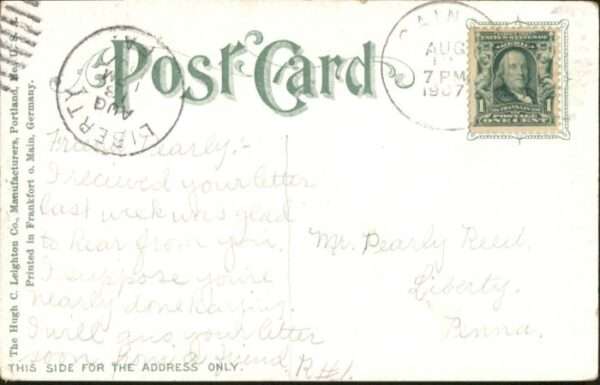 Post Card
LIBERTY
AUG
PA.
AUG
7 PM
1907
UNITED STATES OF AMERICA
FRANKLIN
1 1
ONE CENT
The Hugh C. Leighton Co., Manufacturers, Portland, Me., U.S.A.
Printed in Frankfort o. Main, Germany.
Friend Pearly:-
I recieved your letter
last week was glad
to hear from you.
I suppose you're
nearly done haying.
I will ans your letter
soon from a friend
R#1.
Mr. Pearly Reed.
Liberty.
Penna.
THIS SIDE FOR THE ADDRESS ONLY.